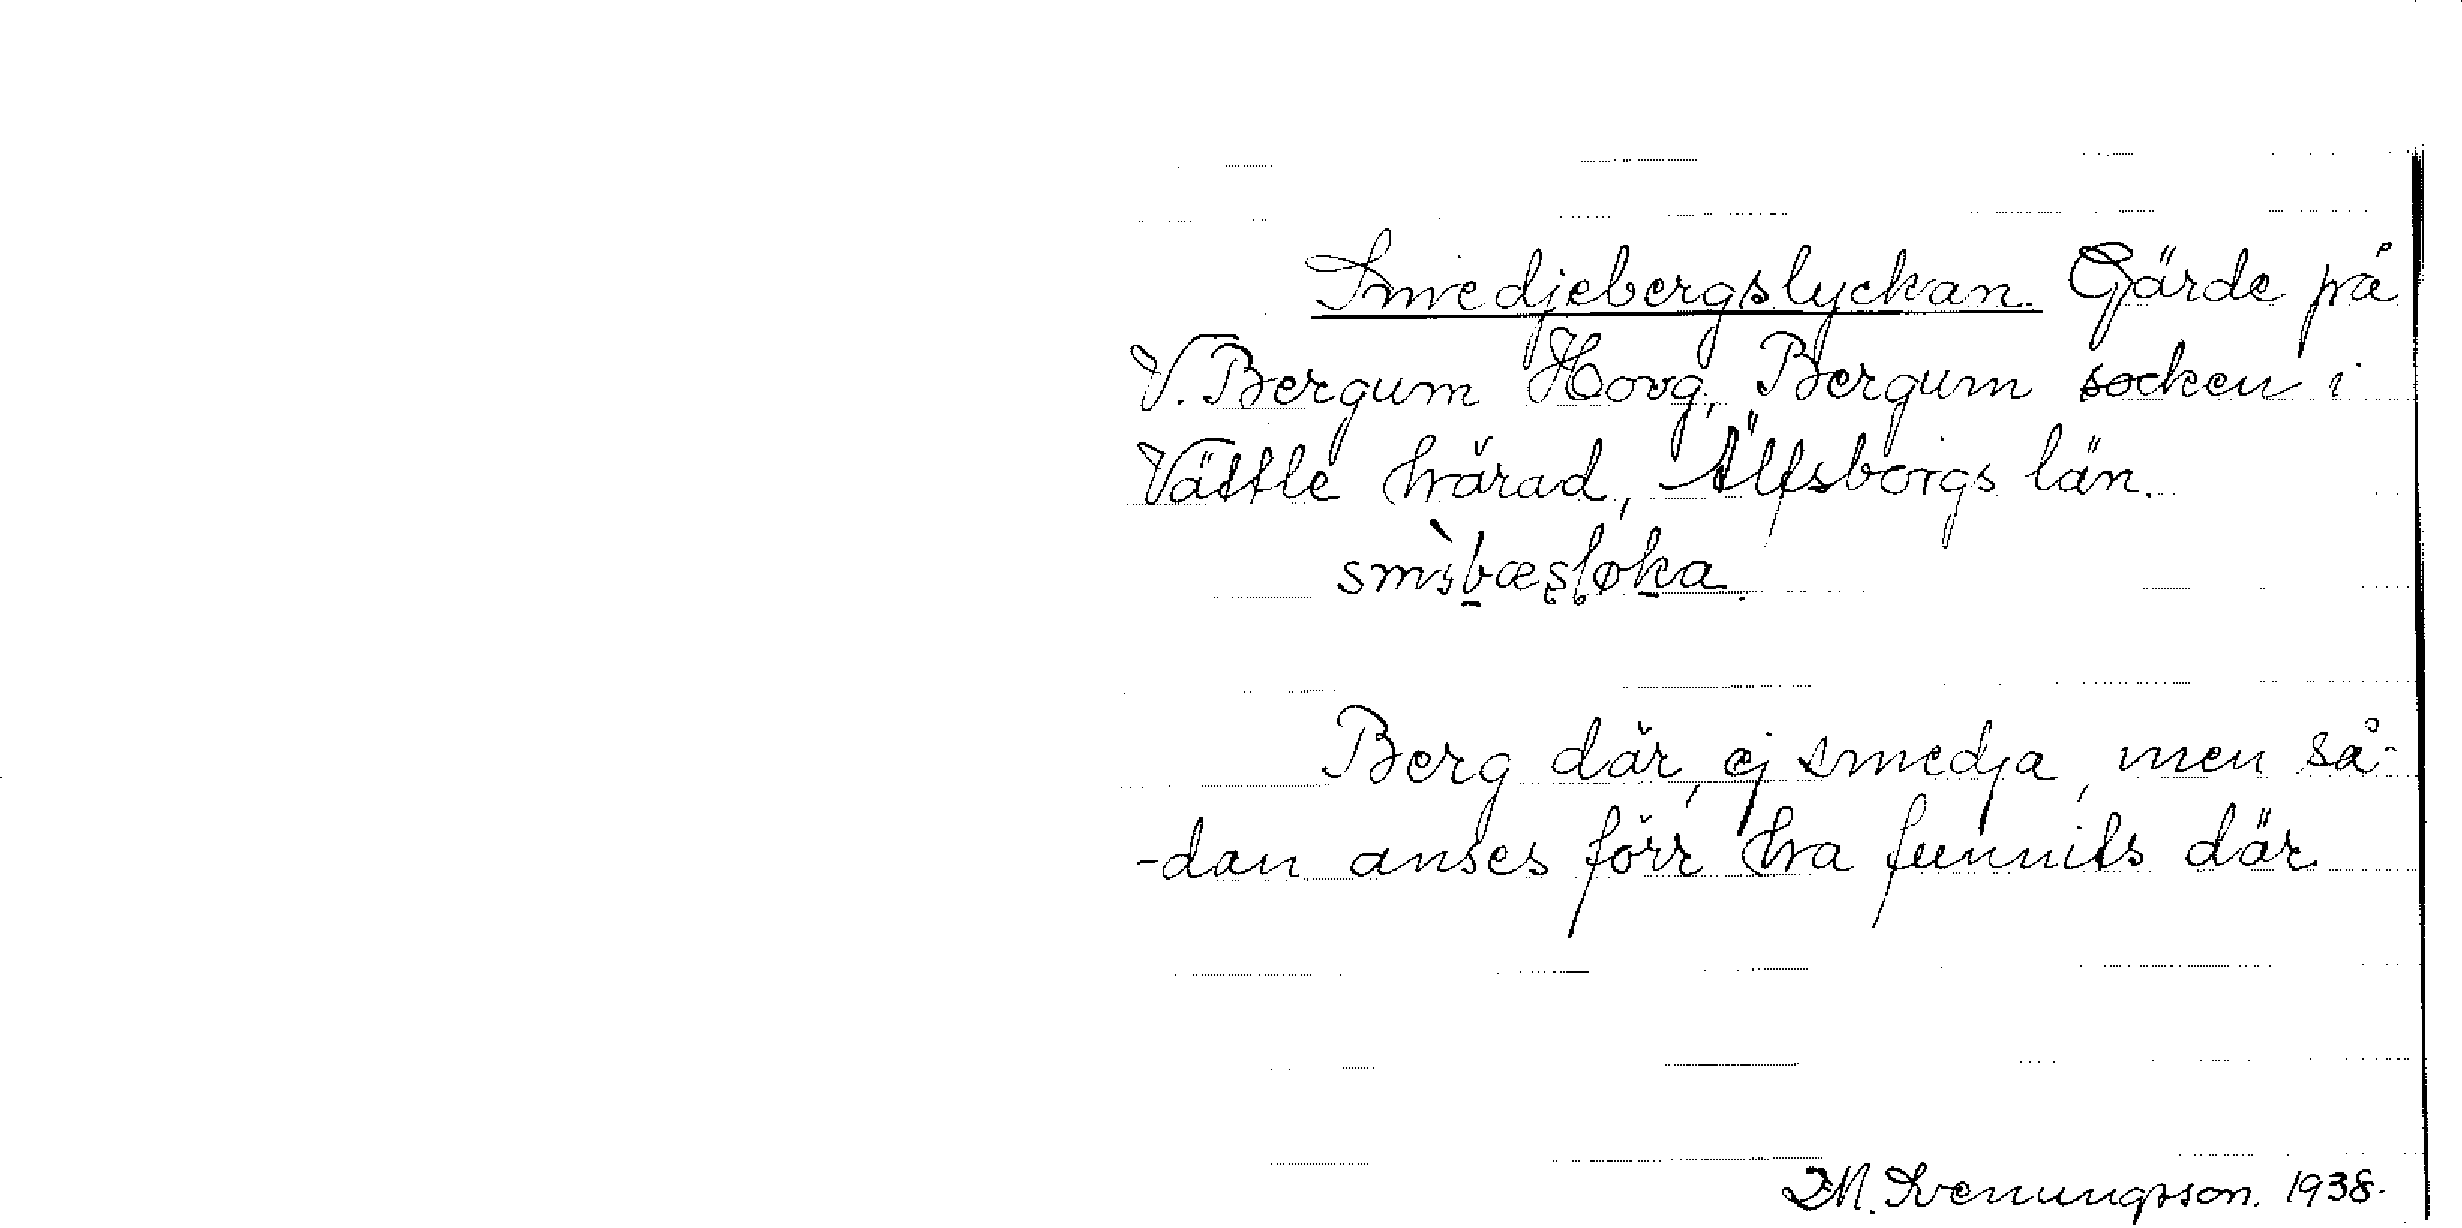 Smedjebergslyckan. Gärde på
V. Bergum Hovg, Bergum socken i
Vättle härad, Älfsborgs län.
Berg där, ej smedja, men så-
-dan anses förr ha funnits där
M. Svenungsson. 1938.